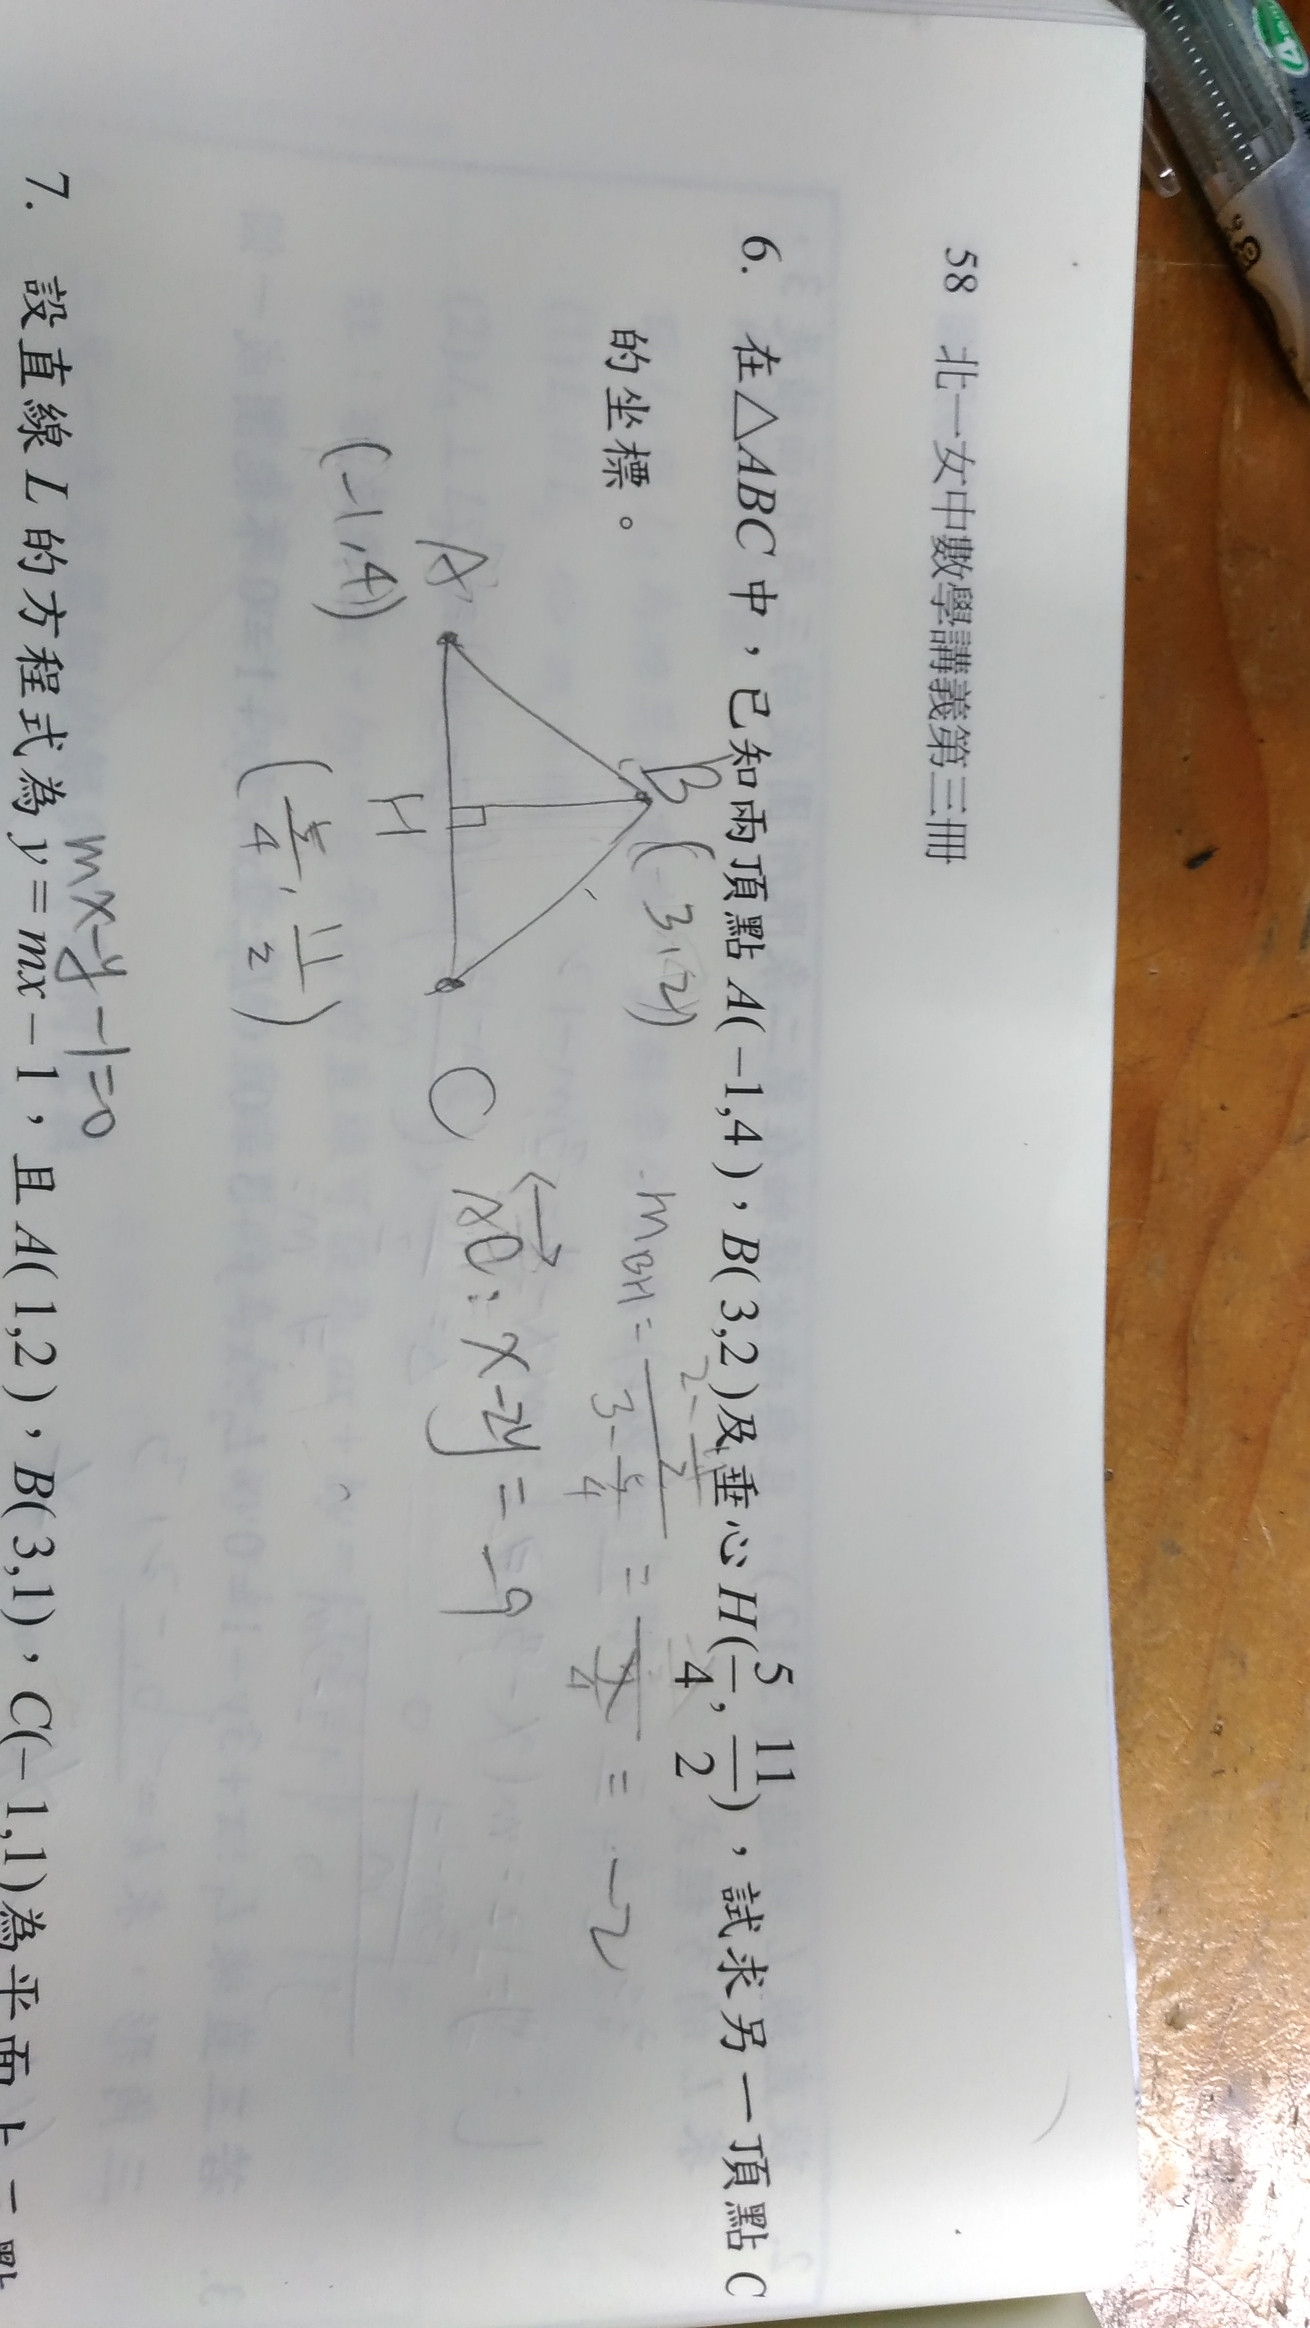 58 北一女中數學講義第三冊
6. 在△ABC中，已知兩頂點A(−1,4)，B(3,2)及垂心H(5/4, 11/2)，試求另一頂點C
的坐標。
B (3,2)
A
(-1,4)
H
(5/4, 11/2)
C
m_BH = (2-11/2)/(3-5/4) = = -2
x-2y=-9
mx-y-1=0
7. 設直線L的方程式為y=mx−1，且A(1,2)，B(3,1)，C(−1,1)為平面上三點